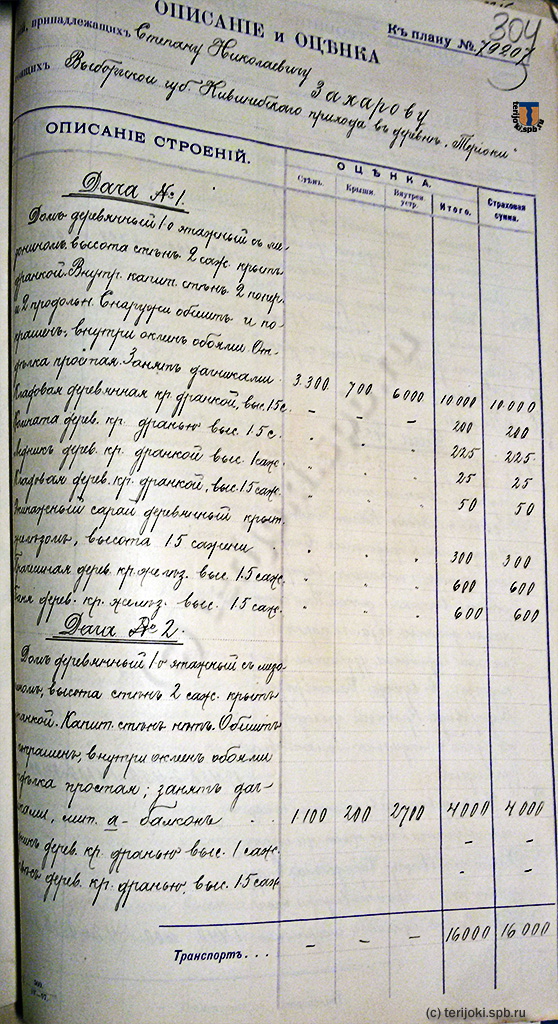 304
ОПИСАНІЕ и ОЦѢНКА
Къ плану № 79207
принадлежащихъ Степану Николаевичу Захарову
Выборгской губ. Кивинебскаго прихода въ деревнѣ „Теріоки“
terijoki.spb.ru
ОПИСАНІЕ СТРОЕНІЙ.
ОЦѢНКА.
Стѣнъ. Крыши. Внутрен. устр. Итого. Страховая сумма.
Дача № 1.
Домъ деревянный 1-о этажный съ ме-
зониномъ, высота стѣнъ 2 саж. крытъ
дранкой. Внутр. капит. стѣнъ 2 попер.
и 2 продольн. Снаружи обшитъ и по-
крашенъ, внутри оклеенъ обоями. От-
дѣлка простая. Занятъ дачниками. 3.300 700 6000 10000 10000
Кладовая деревянная кр. дранкой, выс. 1.5 с. - - - 200 200
дерев. кр. дранью выс. 1.5 с. 225 225
Ледникъ дерев. кр. дранкой выс. 1 саж. 25 25
Кладовая дерев. кр. дранкой, выс. 1.5 саж. 50 50
Экипажный сарай деревянный крыт.
желѣзомъ, высота 1.5 сажени 300 300
дерев. кр. желѣз. выс. 1.5 саж. 600 600
Баня дерев. кр. желѣз. выс. 1.5 саж. 600 600
Дача № 2.
Домъ деревянный 1-о этажный съ мезо-
ниномъ, высота стѣнъ 2 саж. крытъ
дранкой. Капит. стѣнъ нѣтъ. Обшитъ
покрашенъ, внутри оклеенъ обоями
отдѣлка простая; занятъ дач-
никами, лит. а - балконъ . . 1100 200 2700 4000 4000
дерев. кр. дранью выс. 1 саж. - -
дерев. кр. дранью, выс. 1.5 саж. - -
Транспортъ . . . - - - 16000 16000
(c) terijoki.spb.ru